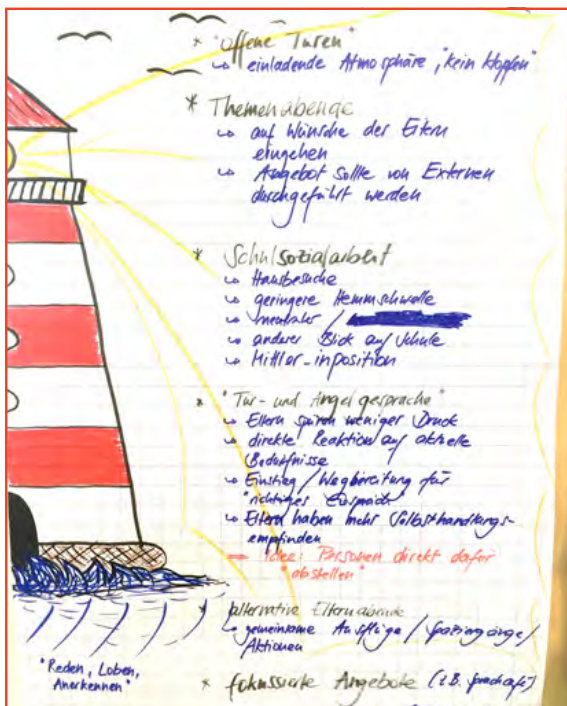 * "offene Türen"
↳ einladende Atmosphäre, "kein Klopfen"
* Themenabende
↳ auf Wünsche der Eltern
eingehen
↳ Angebot sollte von Externen
durchgeführt werden
* Schulsozialarbeit
↳ Hausbesuche
↳ geringere Hemmschwelle
↳ neutraler /
↳ anderer Blick auf Schule
↳ Mittler_inposition
* "Tür- und Angelgespräche"
↳ Eltern spüren weniger Druck
↳ direkte Reaktion auf aktuelle
Bedürfnisse
↳ Einstieg / Wegbereitung für
"richtiges Gespräch"
↳ Eltern haben mehr Selbsthandlungs-
empfinden
⇒ Idee: Personen direkt dafür
"abstellen"
* alternative Elternabende
↳ gemeinsame Ausflüge / Spaziergänge /
Aktionen
"Reden, Loben,
Anerkennen"
* fokussierte Angebote (z.B. Sprachcafé)